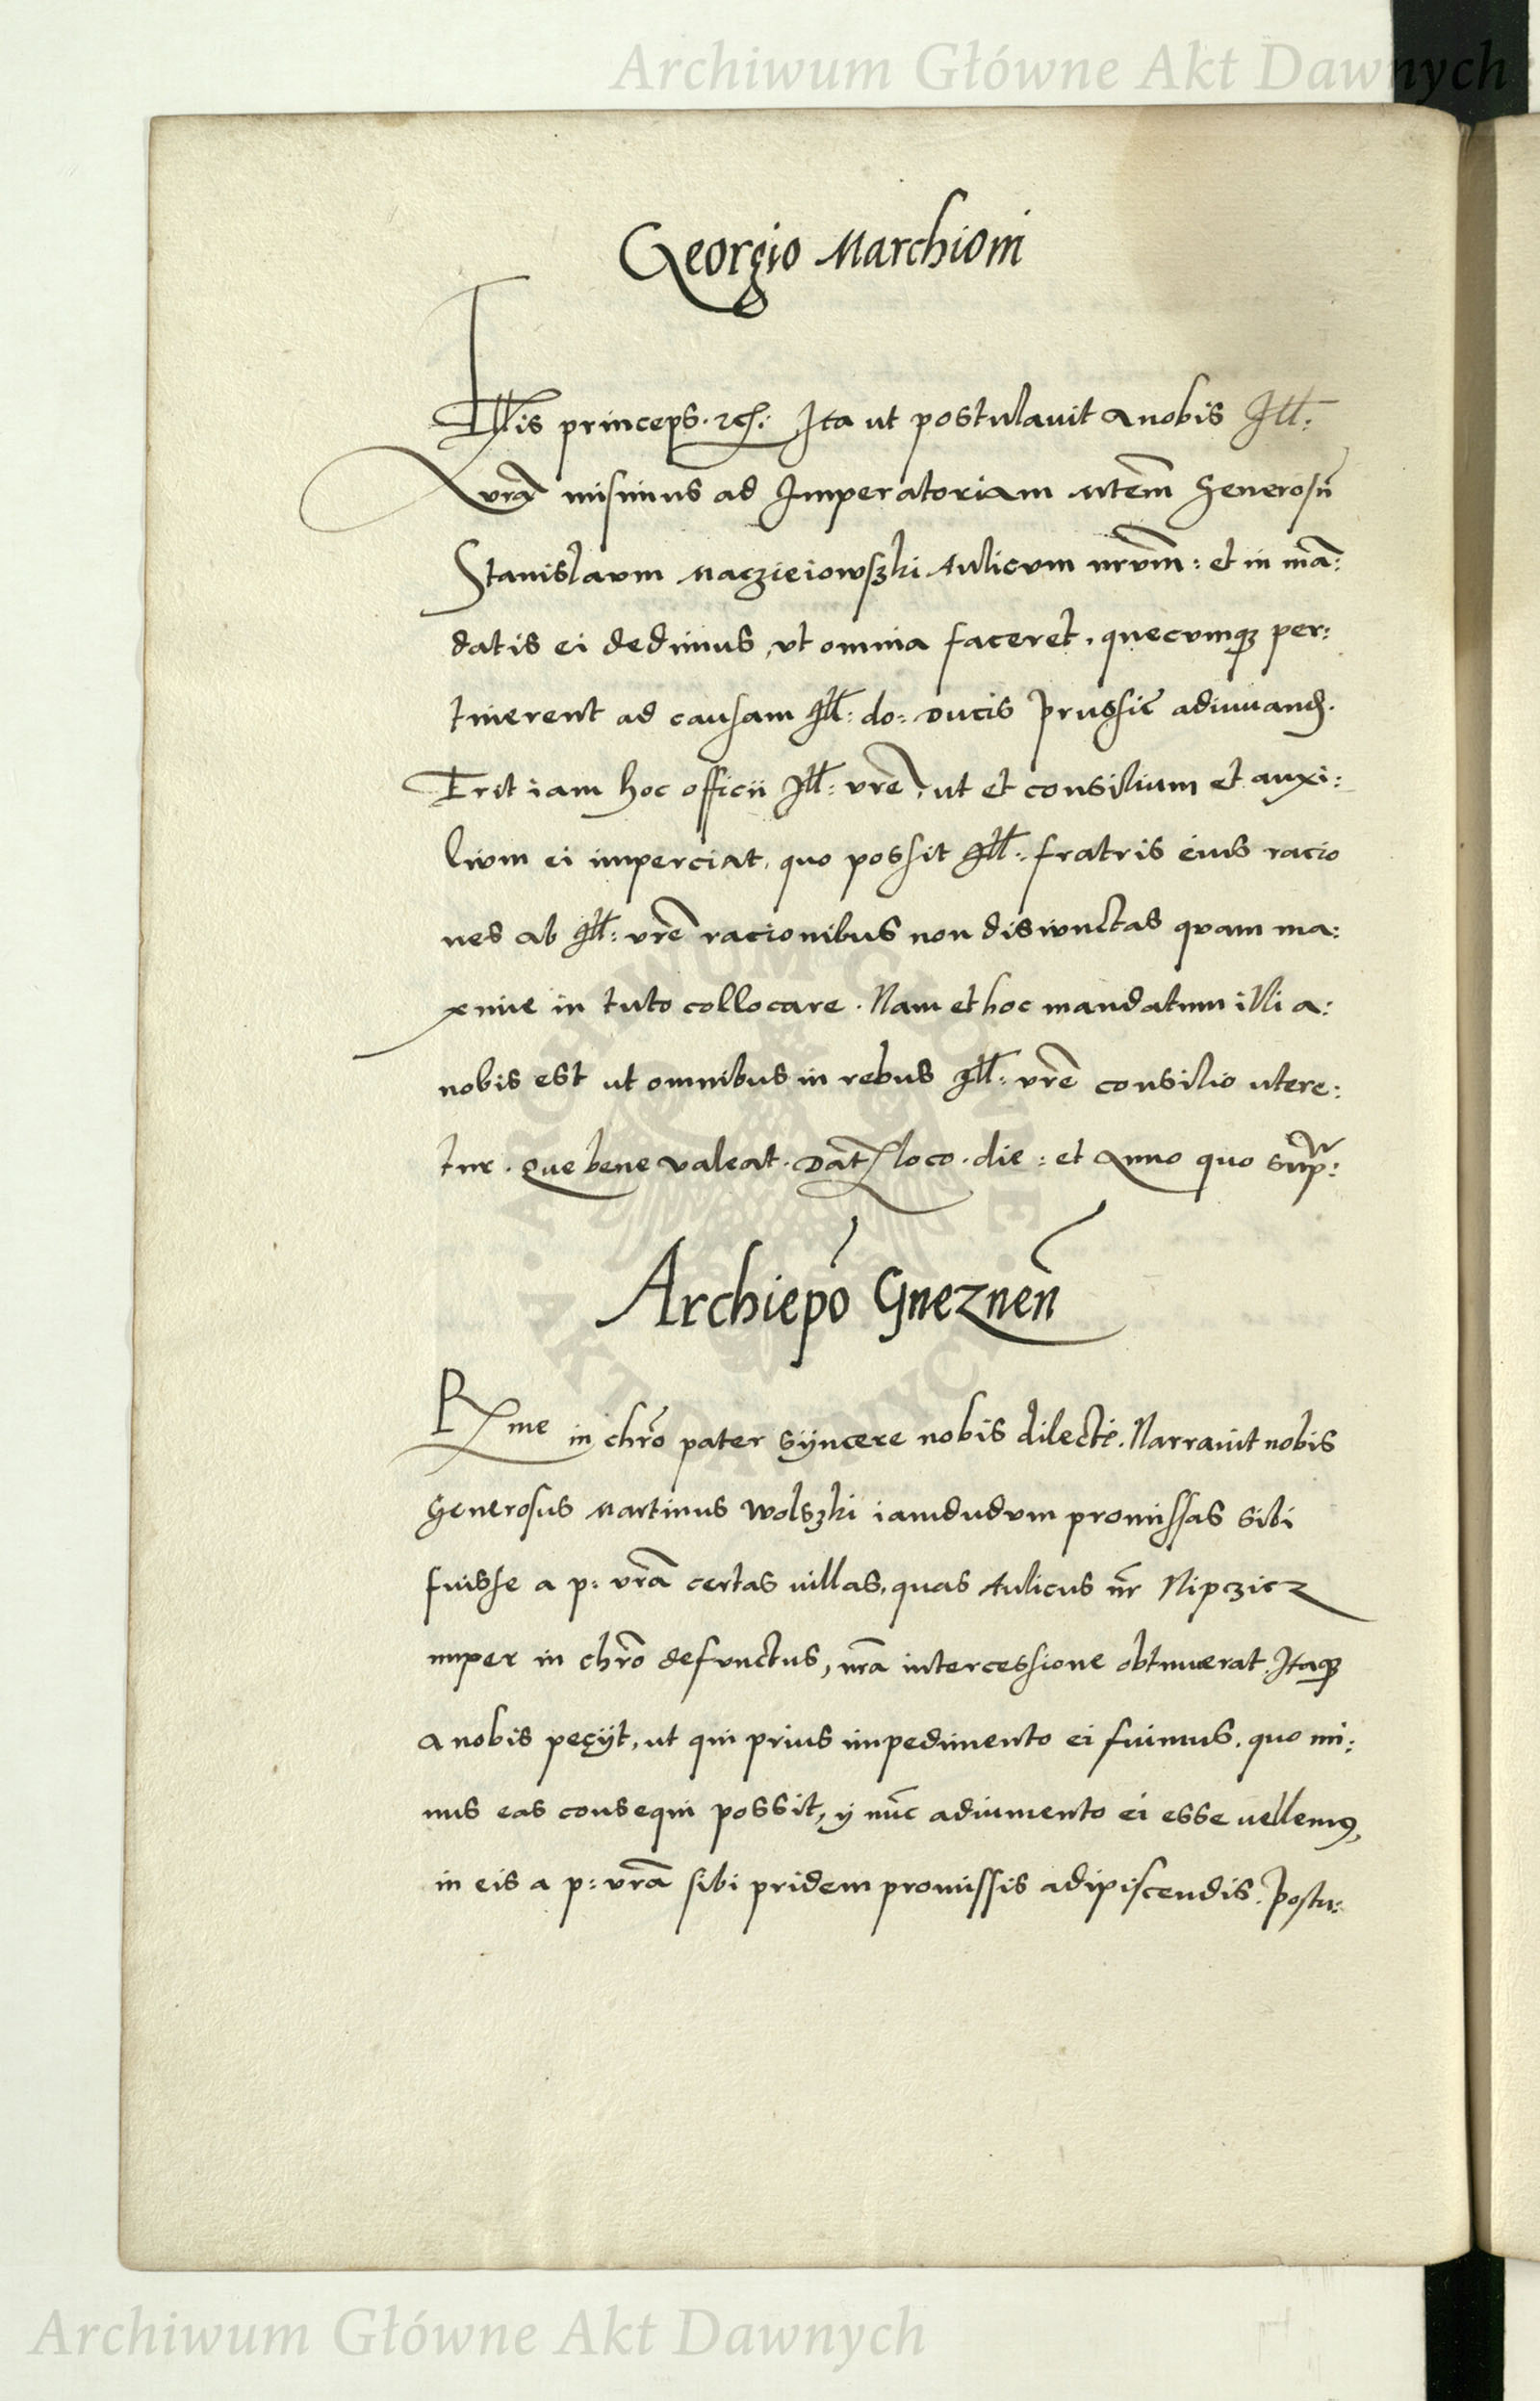 Archiwum Główne Akt Dawnych
Georgio Marchioni
Illris princeps. etc: Ita ut postulavit a nobis Ill:
vrã misimus ad Imperatoriam Mtem Generosũ
Stanislaum Maczieiowszki Aulicum nrum: et in mã:
datis ei dedimus, ut omnia faceret, quecumqz per:
tinerent ad causam Ill: do: Ducis Prussie adiuuand.
Erit iam hoc officii Ill: vrẽ, ut et consilium et auxi:
lium ei imperciat, quo possit Ill: fratris eius racio
nes ab Ill: vrẽ racionibus non disiunctas quam ma:
xime in tuto collocare. Nam et hoc mandatum illi a:
nobis est ut omnibus in rebus Ill: vrẽ consilio utere:
tur. Que bene valeat. Dat loco. die: et Anno quo sup:
Archiepõ Gneznen̄
Rme in chrõ pater syncere nobis dilecte. Narravit nobis
Generosus Martinus Wolszki iamdudum promissas sibi
fuisse a p: vrã certas villas, quas Aulicus nr̃ Nipczicz
nuper in chrõ defunctus, nrã intercessione obtinuerat. Itaqz
a nobis pecyt, ut qui prius impedimento ei fuimus, quo mi:
nus eas consequi possit, y nũc adiumento ei esse vellemꝰ,
in eis a p: vrã sibi pridem promissis adipiscendis. Postu:
ARCHIWUM GŁÓWNE · AKT DAWNYCH ·
Archiwum Główne Akt Dawnych